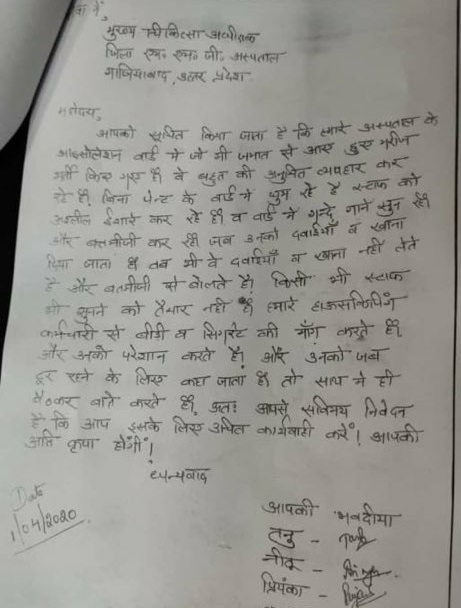 में,
मुख्य चिकित्सा अधीक्षक
जिला एम॰ एम॰ जी॰ अस्पताल
गाजियाबाद, उत्तर प्रदेश
महोदय,
आपको सूचित किया जाता है कि हमारे अस्पताल के
आइसोलेशन वार्ड में जो भी जमात से आए हुए मरीज
भर्ती किए गए हैं वे बहुत की अनुचित व्यवहार कर
रहे हैं, बिना पेन्ट के वार्ड में घुम रहे है स्टाफ को
अश्लील ईशारे कर रहे हैं व वार्ड में गन्दे गाने सुन रहे
और बतमीजी कर रहे जब उनको दवाईयाँ व खाना
दिया जाता है तब भी वे दवाईयाँ व खाना नहीं लेते
है और बतमीजी से बोलते है। किसी भी स्टाफ
की सुनने को तैयार नहीं हैं हमारे हाऊसकिपिंग
कर्मचारी से बीडी व सिगरेट की माँग करते हैं
और उनको परेशान करते हैं। और उनको जब
दूर रहने के लिए कहा जाता है तो साथ में ही
बैठकर बाते करते हैं, अतः आपसे सविनय निवेदन
है कि आप इसके लिए उचित कार्यवाही करें! आपकी
अति कृपा होगी!
धन्यवाद
Date
1/04/2020
आपकी भवदीया
तनु -
नीटू -
प्रियंका -